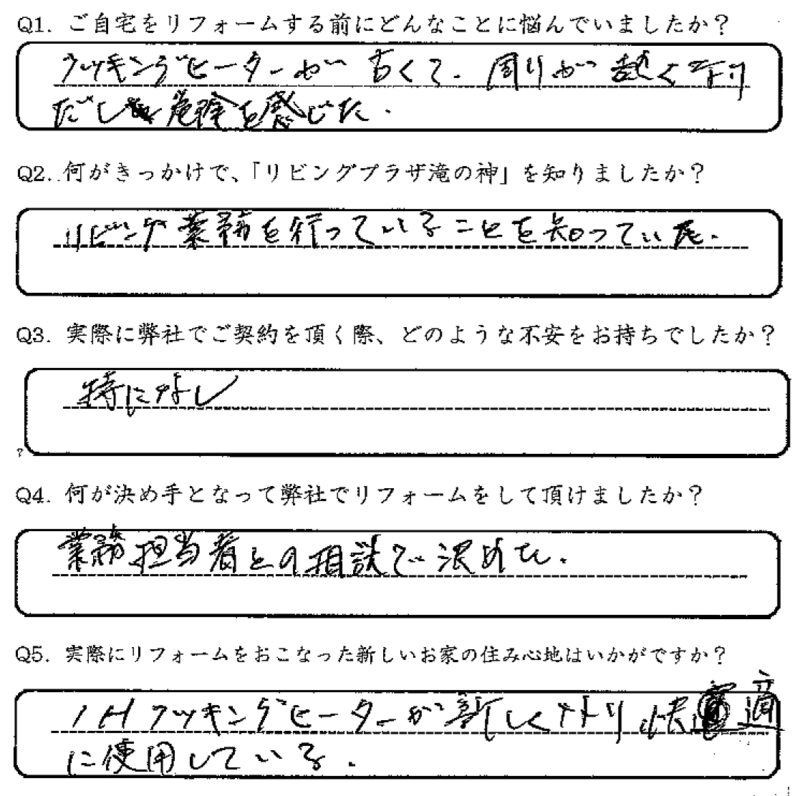 Q1. ご自宅をリフォームする前にどんなことに悩んでいましたか？
クッキングヒーターが古くて、周りが熱くなり
だし危険を感じた.
Q2. 何がきっかけで、「リビングプラザ滝の神」を知りましたか？
リビング業務を行っていることを知っていた.
Q3. 実際に弊社でご契約を頂く際、どのような不安をお持ちでしたか？
特になし
?
Q4. 何が決め手となって弊社でリフォームをして頂けましたか？
業務担当者との相談で決めた.
Q5. 実際にリフォームをおこなった新しいお家の住み心地はいかがですか？
IHクッキングヒーターが新しくなり快適
に使用している.